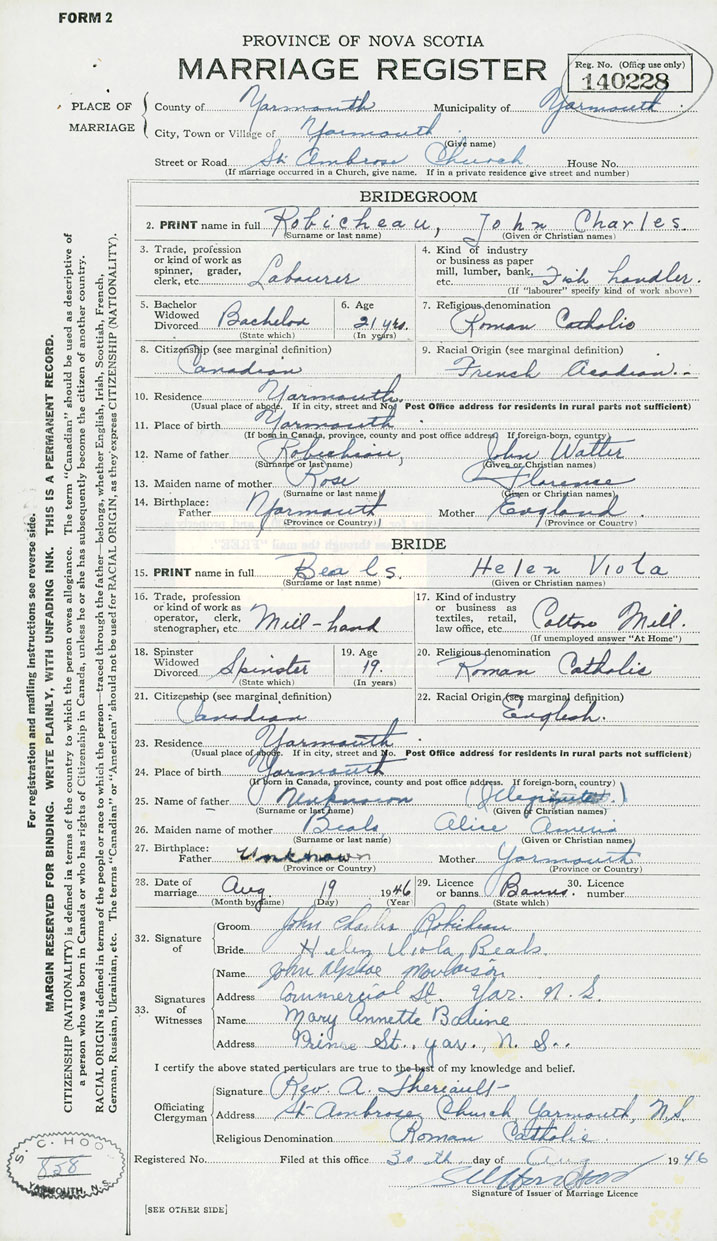 FORM 2
PROVINCE OF NOVA SCOTIA
MARRIAGE REGISTER
Reg. No. (Office use only)
140228
PLACE OF MARRIAGE
County of Yarmouth Municipality of Yarmouth
City, Town or Village of Yarmouth
(Give name)
Street or Road St. Ambrose Church House No.
(If marriage occurred in a Church, give name. If in a private residence give street and number)
BRIDEGROOM
2. PRINT name in full Robicheau, John Charles
(Surname or last name) (Given or Christian names)
3. Trade, profession or kind of work as spinner, grader, clerk, etc. Labourer
4. Kind of industry or business as paper mill, lumber, bank, etc. Fish handler.
(If "labourer" specify kind of work above)
5. Bachelor Widowed Divorced Bachelor
(State which)
6. Age 21 yrs.
(In years)
7. Religious denomination Roman Catholic
8. Citizenship (see marginal definition) Canadian
9. Racial Origin (see marginal definition) French Acadian.
10. Residence Yarmouth.
(Usual place of abode. If in city, street and No. Post Office address for residents in rural parts not sufficient)
11. Place of birth Yarmouth
(If born in Canada, province, county and post office address. If foreign-born, country)
12. Name of father Robicheau, John Walter
(Surname or last name) (Given or Christian names)
13. Maiden name of mother Rose Florence
(Surname or last name) (Given or Christian names)
14. Birthplace: Father Yarmouth Mother England
(Province or Country) (Province or Country)
BRIDE
15. PRINT name in full Beals. Helen Viola
(Surname or last name) (Given or Christian names)
16. Trade, profession or kind of work as operator, clerk, stenographer, etc. Mill-hand
17. Kind of industry or business as textiles, retail, law office, etc. Cotton Mill.
(If unemployed answer "At Home")
18. Spinster Widowed Divorced Spinster
(State which)
19. Age 19.
(In years)
20. Religious denomination Roman Catholic
21. Citizenship (see marginal definition) Canadian
22. Racial Origin (see marginal definition) English.
23. Residence Yarmouth
(Usual place of abode. If in city, street and No. Post Office address for residents in rural parts not sufficient)
24. Place of birth Yarmouth
(If born in Canada, province, county and post office address. If foreign-born, country)
25. Name of father Unknown
(Surname or last name) (Given or Christian names)
26. Maiden name of mother Beals Alice
(Surname or last name) (Given or Christian names)
27. Birthplace: Father Unknown Mother Yarmouth
(Province or Country) (Province or Country)
28. Date of marriage Aug. 19 1946
(Month by name) (Day) (Year)
29. Licence or banns Banns.
(State which)
30. Licence number
32. Signature of
Groom John Charles
Bride Helen Viola Beals.
33. Signatures of Witnesses
Name John
Address Commercial St. Yar. N.S.
Name Mary Annette
Address Prince St., Yar., N.S.
I certify the above stated particulars are true to the best of my knowledge and belief.
Officiating Clergyman
Signature Rev. A. Theriault
Address St. Ambrose Church Yarmouth, N.S
Religious Denomination Roman Catholic
Registered No. Filed at this office 30 th. day of Aug 1946
Signature of Issuer of Marriage Licence
[SEE OTHER SIDE]
For registration and mailing instructions see reverse side.
MARGIN RESERVED FOR BINDING. WRITE PLAINLY, WITH UNFADING INK. THIS IS A PERMANENT RECORD.
CITIZENSHIP (NATIONALITY) is defined in terms of the country to which the person owes allegiance. The term "Canadian" should be used as descriptive of
a person who was born in Canada or who has rights of Citizenship in Canada, unless he or she has subsequently become the citizen of another country.
RACIAL ORIGIN is defined in terms of the people or race to which the person—traced through the father—belongs, whether English, Irish, Scottish, French,
German, Russian, Ukrainian, etc. The terms "Canadian" or "American" should not be used for RACIAL ORIGIN, as they express CITIZENSHIP (NATIONALITY).
S. C. HOO
858
YARMOUTH, N.S.